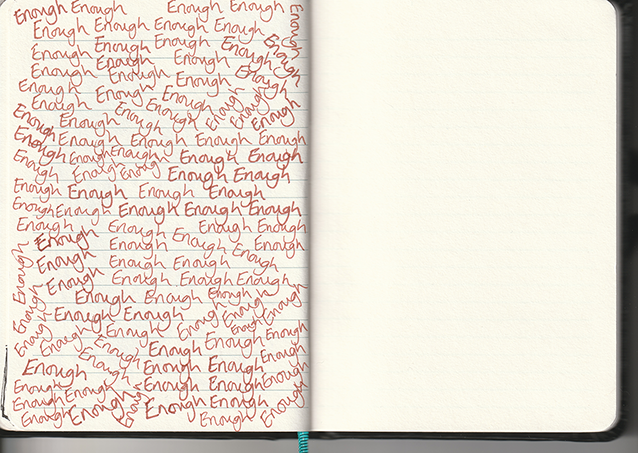 Enough Enough Enough Enough Enough
Enough Enough Enough Enough
Enough Enough Enough Enough Enough
Enough Enough
Enough Enough Enough Enough
Enough Enough Enough
Enough Enough Enough Enough Enough Enough
Enough Enough
Enough Enough Enough Enough Enough
Enough Enough Enough Enough Enough
Enough Enough Enough Enough
Enough Enough Enough Enough
Enough Enough Enough Enough Enough
Enough Enough Enough Enough Enough
Enough Enough Enough
Enough Enough Enough Enough Enough
Enough Enough Enough Enough
Enough Enough Enough Enough
Enough Enough Enough Enough Enough
Enough Enough Enough Enough
Enough Enough Enough Enough
Enough Enough Enough Enough Enough
Enough Enough Enough Enough Enough
Enough Enough Enough Enough Enough Enough
Enough Enough